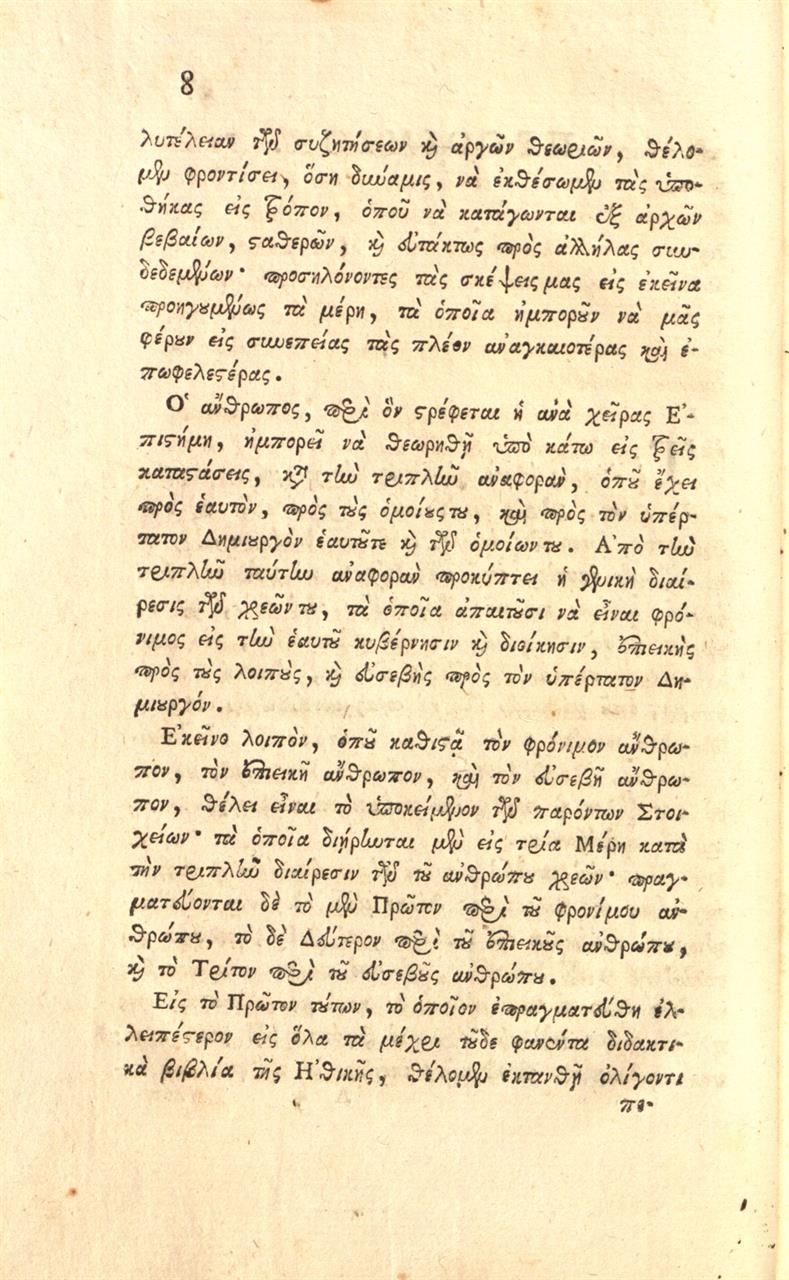 8
λυτέλειαν τῶν συζητήσεων καὶ ἀργῶν θεωριῶν, θέλο-
μεν φροντίσει, ὅση δύναμις, νὰ ἐκθέσωμεν τὰς ὑπο-
θήκας εἰς τρόπον, ὁποῦ νὰ κατάγωνται ἐξ ἀρχῶν
βεβαίων, σταθερῶν, καὶ εὐτάκτως πρὸς ἀλλήλας συν-
δεδεμένων· προσηλόνοντες τὰς σκέψεις μας εἰς ἐκεῖνα
προηγουμένως τὰ μέρη, τὰ ὁποῖα ἠμποροῦν νὰ μᾶς
φέρουν εἰς συνεπείας τὰς πλέον ἀναγκαιοτέρας καὶ ἐ-
πωφελεστέρας.
Ὁ ἄνθρωπος, περὶ ὃν στρέφεται ἡ ἀνὰ χεῖρας Ἐ-
πιστήμη, ἠμπορεῖ νὰ θεωρηθῇ ὑπὸ κάτω εἰς τρεῖς
καταστάσεις, κατὰ τὴν τριπλῆν ἀναφορὰν, ὁποῦ ἔχει
πρὸς ἑαυτὸν, πρὸς τοὺς ὁμοίους του, καὶ πρὸς τὸν ὑπέρ-
τατον Δημιουργὸν ἑαυτοῦ τε καὶ τῶν ὁμοίων του. Ἀπὸ τὴν
τριπλῆν ταύτην ἀναφορὰν προκύπτει ἡ γενικὴ διαί-
ρεσις τῶν χρεῶν του, τὰ ὁποῖα ἀπαιτοῦσι νὰ εἶναι φρό-
νιμος εἰς τὴν ἑαυτοῦ κυβέρνησιν καὶ διοίκησιν, ἐπιεικὴς
πρὸς τοὺς λοιποὺς, καὶ εὐσεβὴς πρὸς τὸν ὑπέρτατον Δη-
μιουργόν.
Ἐκεῖνο λοιπὸν, ὁποῦ καθιστᾷ τὸν φρόνιμον ἄνθρω-
πον, τὸν ἐπιεικῆ ἄνθρωπον, καὶ τὸν εὐσεβῆ ἄνθρω-
πον, θέλει εἶναι τὸ ὑποκείμενον τῶν παρόντων Στοι-
χείων· τὰ ὁποῖα διῄρηνται μὲν εἰς τρία Μέρη κατὰ
τὴν τριπλῆν διαίρεσιν τῶν τοῦ ἀνθρώπου χρεῶν· πραγ-
ματεύονται δὲ τὸ μὲν Πρῶτον περὶ τοῦ φρονίμου ἀν-
θρώπου, τὸ δὲ Δεύτερον περὶ τοῦ ἐπιεικοῦς ἀνθρώπου,
καὶ τὸ Τρίτον περὶ τοῦ εὐσεβοῦς ἀνθρώπου.
Εἰς τὸ Πρῶτον τούτων, τὸ ὁποῖον ἐπραγματεύθη ἐλ-
λειπέστερον εἰς ὅλα τὰ μέχρι τοῦδε φανέντα διδακτι-
κὰ βιβλία τῆς Ἠθικῆς, θέλομεν ἐκτανθῇ ὀλίγον τι
πε-